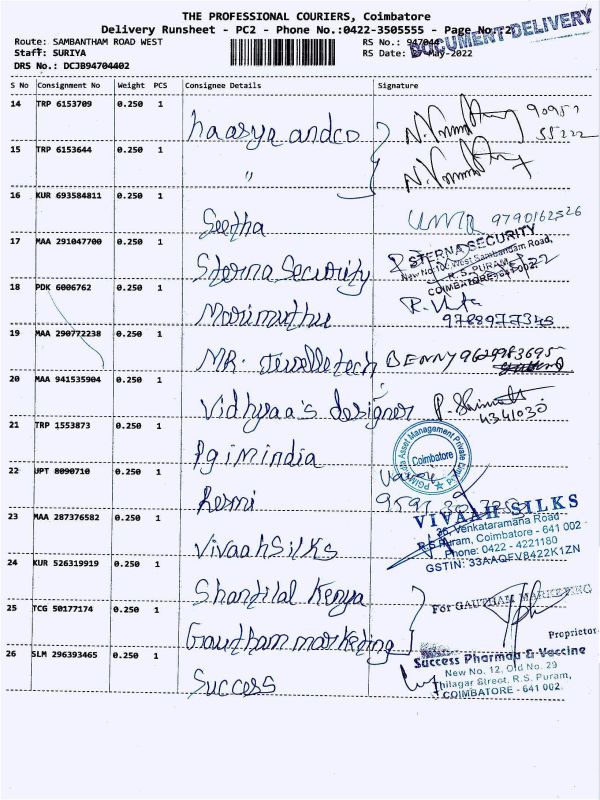 THE PROFESSIONAL COURIERS, Coimbatore
Delivery Runsheet - PC2 - Phone No.:0422-3505555 - Page No.:2
DOCUMENT DELIVERY
Route: SAMBANTHAM ROAD WEST RS No.: 947044
Staff: SURIYA RS Date: 27-May-2022
DRS No.: DCJB94704402
S No Consignment No Weight PCS Consignee Details Signature
14 TRP 6153709 0.250 1 haasya andco
15 TRP 6153644 0.250 1 "
16 KUR 693584811 0.250 1 Seetha UMA 9790162526
17 MAA 291047700 0.250 1 Sterna Security
STERNA SECURITY
New No:100, West Sambandam Road,
R. S. PURAM,
COIMBATORE
18 PDK 6006762 0.250 1 Marimuthu
9788977345
19 MAA 290772238 0.250 1 MR. Jewelletech BENNY 9629983695
20 MAA 941535904 0.250 1 Vidhyaa's designer
4341030
21 TRP 1553873 0.250 1 Pgimindia
PGIM India Asset Management Private Limited
Coimbatore
22 UPT 8090710 0.250 1 Resmi
23 MAA 287376582 0.250 1 Vivaah Silks
VIVAAH SILKS
36, Venkataramana Road
R.S Puram, Coimbatore - 641 002
Phone: 0422 - 4221180
GSTIN: 33AAQFV8422K1ZN
24 KUR 526319919 0.250 1 Shantilal Kenya
25 TCG 50177174 0.250 1 Gautham marketing
For GAUTHAM MARKETING
Proprietor
26 SLM 296393465 0.250 1 Success
Success Pharma & Vaccine
New No. 12, Old No. 29
Thilagar Street, R.S. Puram,
COIMBATORE - 641 002